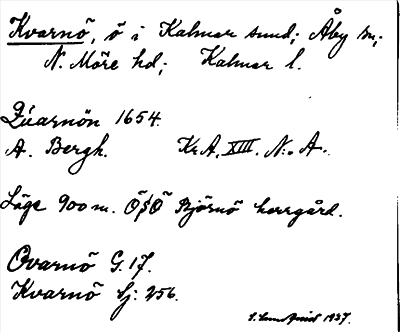 Kvarnö, ö i Kalmar sund; Åby sn;
N. Möre hd; Kalmar l.
Qúarnön 1654.
A. Bergh. Kr.A. XIII. N:. A.
Läge 900 m. ÖSÖ Björnö herrgård.
Qvarnö G. 17.
Kvarnö Sj: 256.
1937.